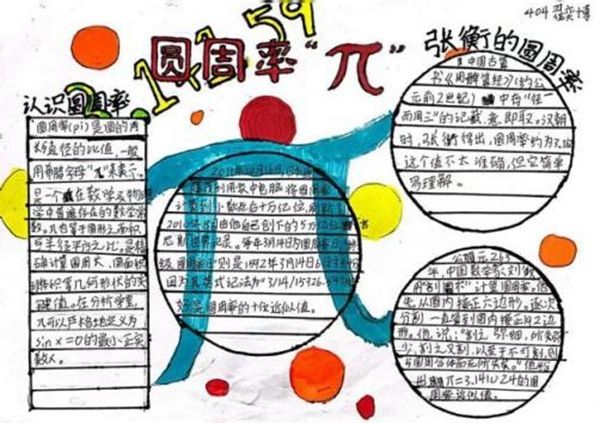 404 翟奕博
3.14159
圆周率“π”
张衡的圆周率
认识圆周率
圆周率(pi)是圆的周
长与直径的比值,一般
用希腊字母“π”来表示,
是一个在数学及物理
学中普遍存在的数学常
数。π也等于圆形之面积
与半径平方之比。是精
确计算圆周长、圆面积
球体积等几何形状的关
键值。在分析学里,
π可以严格地定义为
sin x=0的最小正实
数x。
中国古算
书《周髀算经》(约公
元前2世纪)中有“径一
而周三”的记载,意即取。汉朝
时,张衡得出,圆周率约为
这个值不太准确,但它简单
易理解。
2011年10月16日,
利用家中电脑将圆周率
计算到小数点后十万亿位,刷新了
2010年8月由他自己创下的5万亿位
尼斯世界纪录。每年3月14日为圆周率日,
圆周率日”则是1592年3月14日6时54分,
因为其英式记法为“3/14/15926.54”
好是圆周率的十位近似值。
公元263
年,中国数学家刘徽
用“割圆术”计算圆周率,他
先从圆内接正六边形,逐次
分割一直算到圆内接正192边
形。他说:“割之弥细,所失弥
少,割之又割,以至于不可割,则
与圆周合体而无所失矣。”他
出π=3.141024的圆
周率近似值。